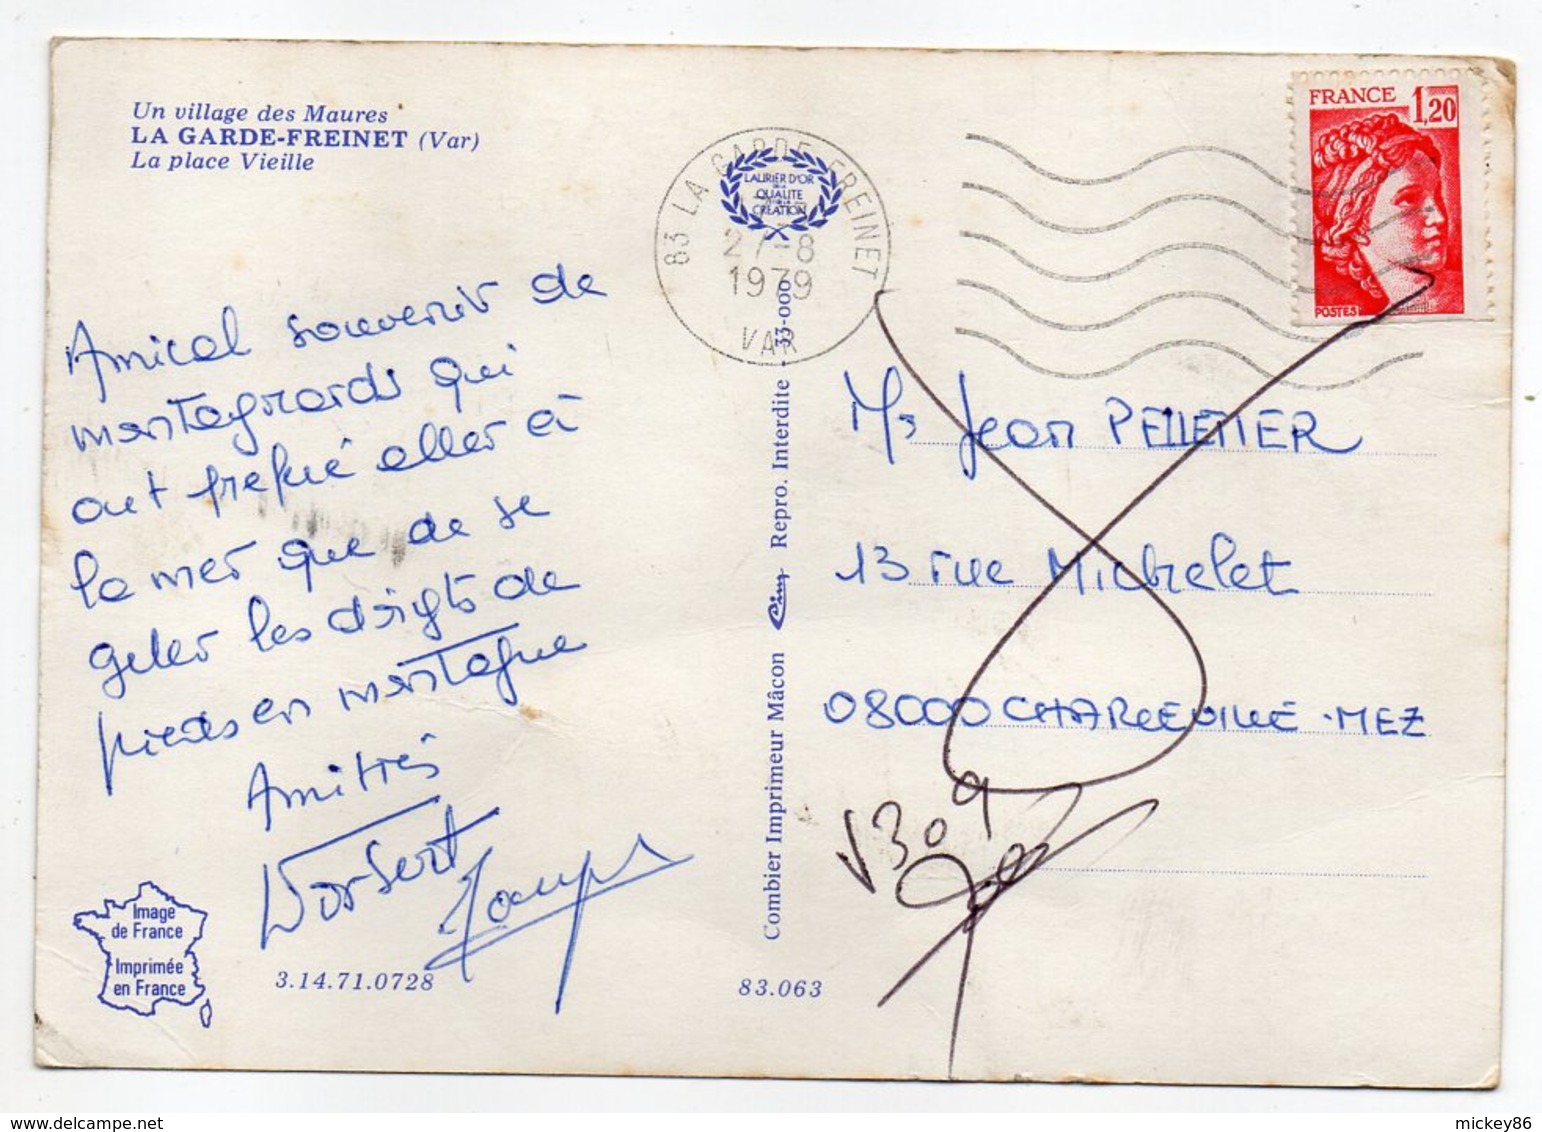 Un village des Maures
LA GARDE-FREINET (Var)
La place Vieille
83 LA GARDE-FREINET
27-8
1979
VAR
LAURIER D'OR
DE LA
QUALITE
CREATION
FRANCE 1,20
POSTES
Amical souvenir de
montagnards qui
ont preferé aller à
la mer que de se
geler les doigts de
pieds en montagne
Amitiés
Mr Jean PELLETIER
13 rue Michelet
08000 CHARLEVILLE-MEZ
Combier Imprimeur Mâcon Cim Repro. Interdite - 33-000
Image
de France
Imprimée
en France
3.14.71.0728
83.063
mickey86